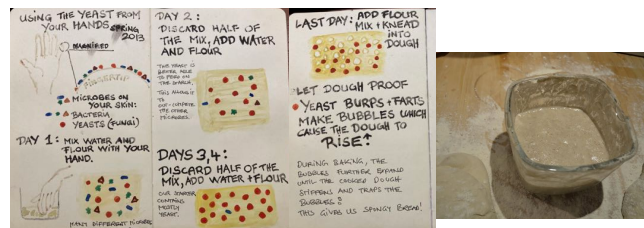 USING THE YEAST FROM
YOUR HANDS
SPRING
2013
MAGNIFIED
MICROBES ON
YOUR SKIN:
BACTERIA
YEASTS (FUNGI)
DAY 1: MIX WATER AND
FLOUR WITH YOUR
HAND.
MANY DIFFERENT MICROBES
DAY 2:
DISCARD HALF OF
THE MIX, ADD WATER
AND FLOUR
THE YEAST IS
BETTER ABLE
TO FEED ON
THE STARCH,
THIS ALLOWS IT
TO
OUT-COMPETE
THE OTHER
MICROBES.
DAYS 3,4:
DISCARD HALF OF THE
MIX, ADD WATER + FLOUR
OUR STARTER
CONTAINS
MOSTLY
YEAST.
LAST DAY: ADD FLOUR
MIX + KNEAD
INTO
DOUGH
LET DOUGH PROOF
YEAST BURPS + FARTS
MAKE BUBBLES WHICH
CAUSE THE DOUGH TO
RISE!
DURING BAKING, THE
BUBBLES FURTHER EXPAND
UNTIL THE COOKED DOUGH
STIFFENS AND TRAPS THE
BUBBLES!
THIS GIVES US SPONGY BREAD!